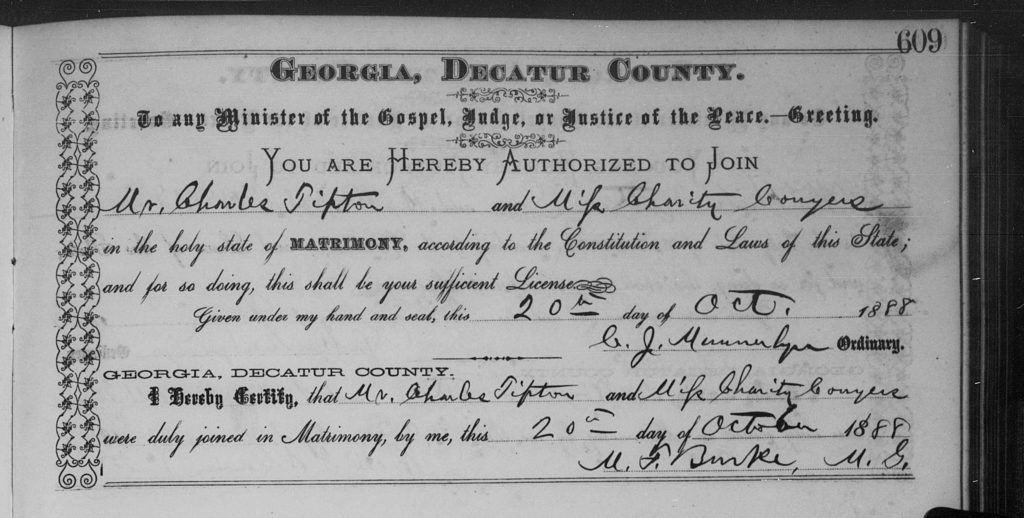 609
GEORGIA, DECATUR COUNTY.
To any Minister of the Gospel, Judge, or Justice of the Peace.—Greeting.
YOU ARE HEREBY AUTHORIZED TO JOIN
Mr. Charles Tipton and Miss Charity Conyers
in the holy state of MATRIMONY, according to the Constitution and Laws of this State;
and for so doing, this shall be your sufficient License.
Given under my hand and seal, this 20th day of Oct. 1888
C. J. Munnerlyn Ordinary.
GEORGIA, DECATUR COUNTY.
I Hereby Certify, that Mr. Charles Tipton and Miss Charity Conyers
were duly joined in Matrimony, by me, this 20th day of October 1888
M. F. Burke, M. G.